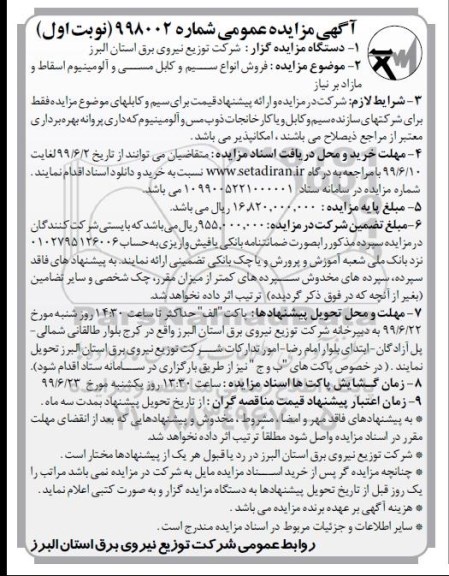 آگهی مزایده عمومی شماره ۹۹۸۰۰۲ (نوبت اول)
۱- دستگاه مزایده گزار : شرکت توزیع نیروی برق استان البرز
۲- موضوع مزایده : فروش انواع سیم و کابل مسی و آلومینیوم اسقاط و
مازاد بر نیاز
۳- شرایط لازم: شرکت در مزایده و ارائه پیشنهاد قیمت برای سیم و کابلهای موضوع مزایده فقط
برای شرکتهای سازنده سیم و کابل و یا کارخانجات ذوب مس و آلومینیوم که دارای پروانه بهره برداری
معتبر از مراجع ذیصلاح می باشند ، امکانپذیر می باشد .
۴- مهلت خرید و محل دریافت اسناد مزایده : متقاضیان می توانند از تاریخ ۹۹/۶/۲ لغایت
۹۹/۶/۱۰ با مراجعه به درگاه www.setadiran.ir نسبت به خرید و دانلود اسناد اقدام نمایند .
شماره مزایده در سامانه ستاد ۱۰۹۹۰۰۵۲۲۱۰۰۰۰۰۱ می باشد.
۵- مبلغ پایه مزایده : ۱۶,۸۲۰,۰۰۰,۰۰۰ ریال می باشد.
۶- مبلغ تضمین شرکت در مزایده: ۹۵۵,۰۰۰,۰۰۰ ریال می باشد که بایستی شرکت کنندگان
در مزایده سپرده مذکور را بصورت ضمانتنامه بانکی یا فیش واریزی به حساب ۰۱۰۲۷۹۵۱۲۶۰۰۶
نزد بانک ملی شعبه آموزش و پرورش و یا چک بانکی تضمینی ارائه نمایند. به پیشنهاد های فاقد
سپرده، سپرده های مخدوش سپرده های کمتر از میزان مقرر، چک شخصی و سایر تضامین
(بغیر از آنچه که در فوق ذکر گردیده) ترتیب اثر داده نخواهد شد.
۷- مهلت و محل تحویل پیشنهادها: پاکت "الف" حداکثر تا ساعت ۱۴:۳۰ روز شنبه مورخ
۹۹/۶/۲۲ به دبیرخانه شرکت توزیع نیروی برق استان البرز واقع در کرج بلوار طالقانی شمالی-
پل آزادگان - ابتدای بلوار امام رضا - امور تدارکات شرکت توزیع نیروی برق استان البرز تحویل
نمایند . (در خصوص پاکت های "ب و ج " نیز از طریق بارگزاری در سامانه ستاد اقدام شود).
۸- زمان گشایش پاکت ها اسناد مزایده : ساعت ۱۳:۳۰ روز یکشنبه مورخ ۹۹/۶/۲۳
۹- زمان اعتبار پیشنهاد قیمت مناقصه گران : از تاریخ تحویل پیشنهاد بمدت سه ماه .
* به پیشنهادهای فاقد مهر و امضا، مشروط، مخدوش و پیشنهادهایی که بعد از انقضای مهلت
مقرر در اسناد مزایده واصل شود مطلقا ترتیب اثر داده نخواهد شد.
* شرکت توزیع نیروی برق استان البرز در رد یا قبول هر یک از پیشنهادها مختار است .
* چنانچه مزایده گر پس از خرید اسناد مزایده مایل به شرکت در مزایده نمی باشد مراتب را
یک روز قبل از تاریخ تحویل پیشنهادها به دستگاه مزایده گزار و به صورت کتبی اعلام نماید .
* هزینه آگهی بر عهده برنده مزایده می باشد .
* سایر اطلاعات و جزئیات مربوط در اسناد مزایده مندرج است .
روابط عمومی شرکت توزیع نیروی برق استان البرز